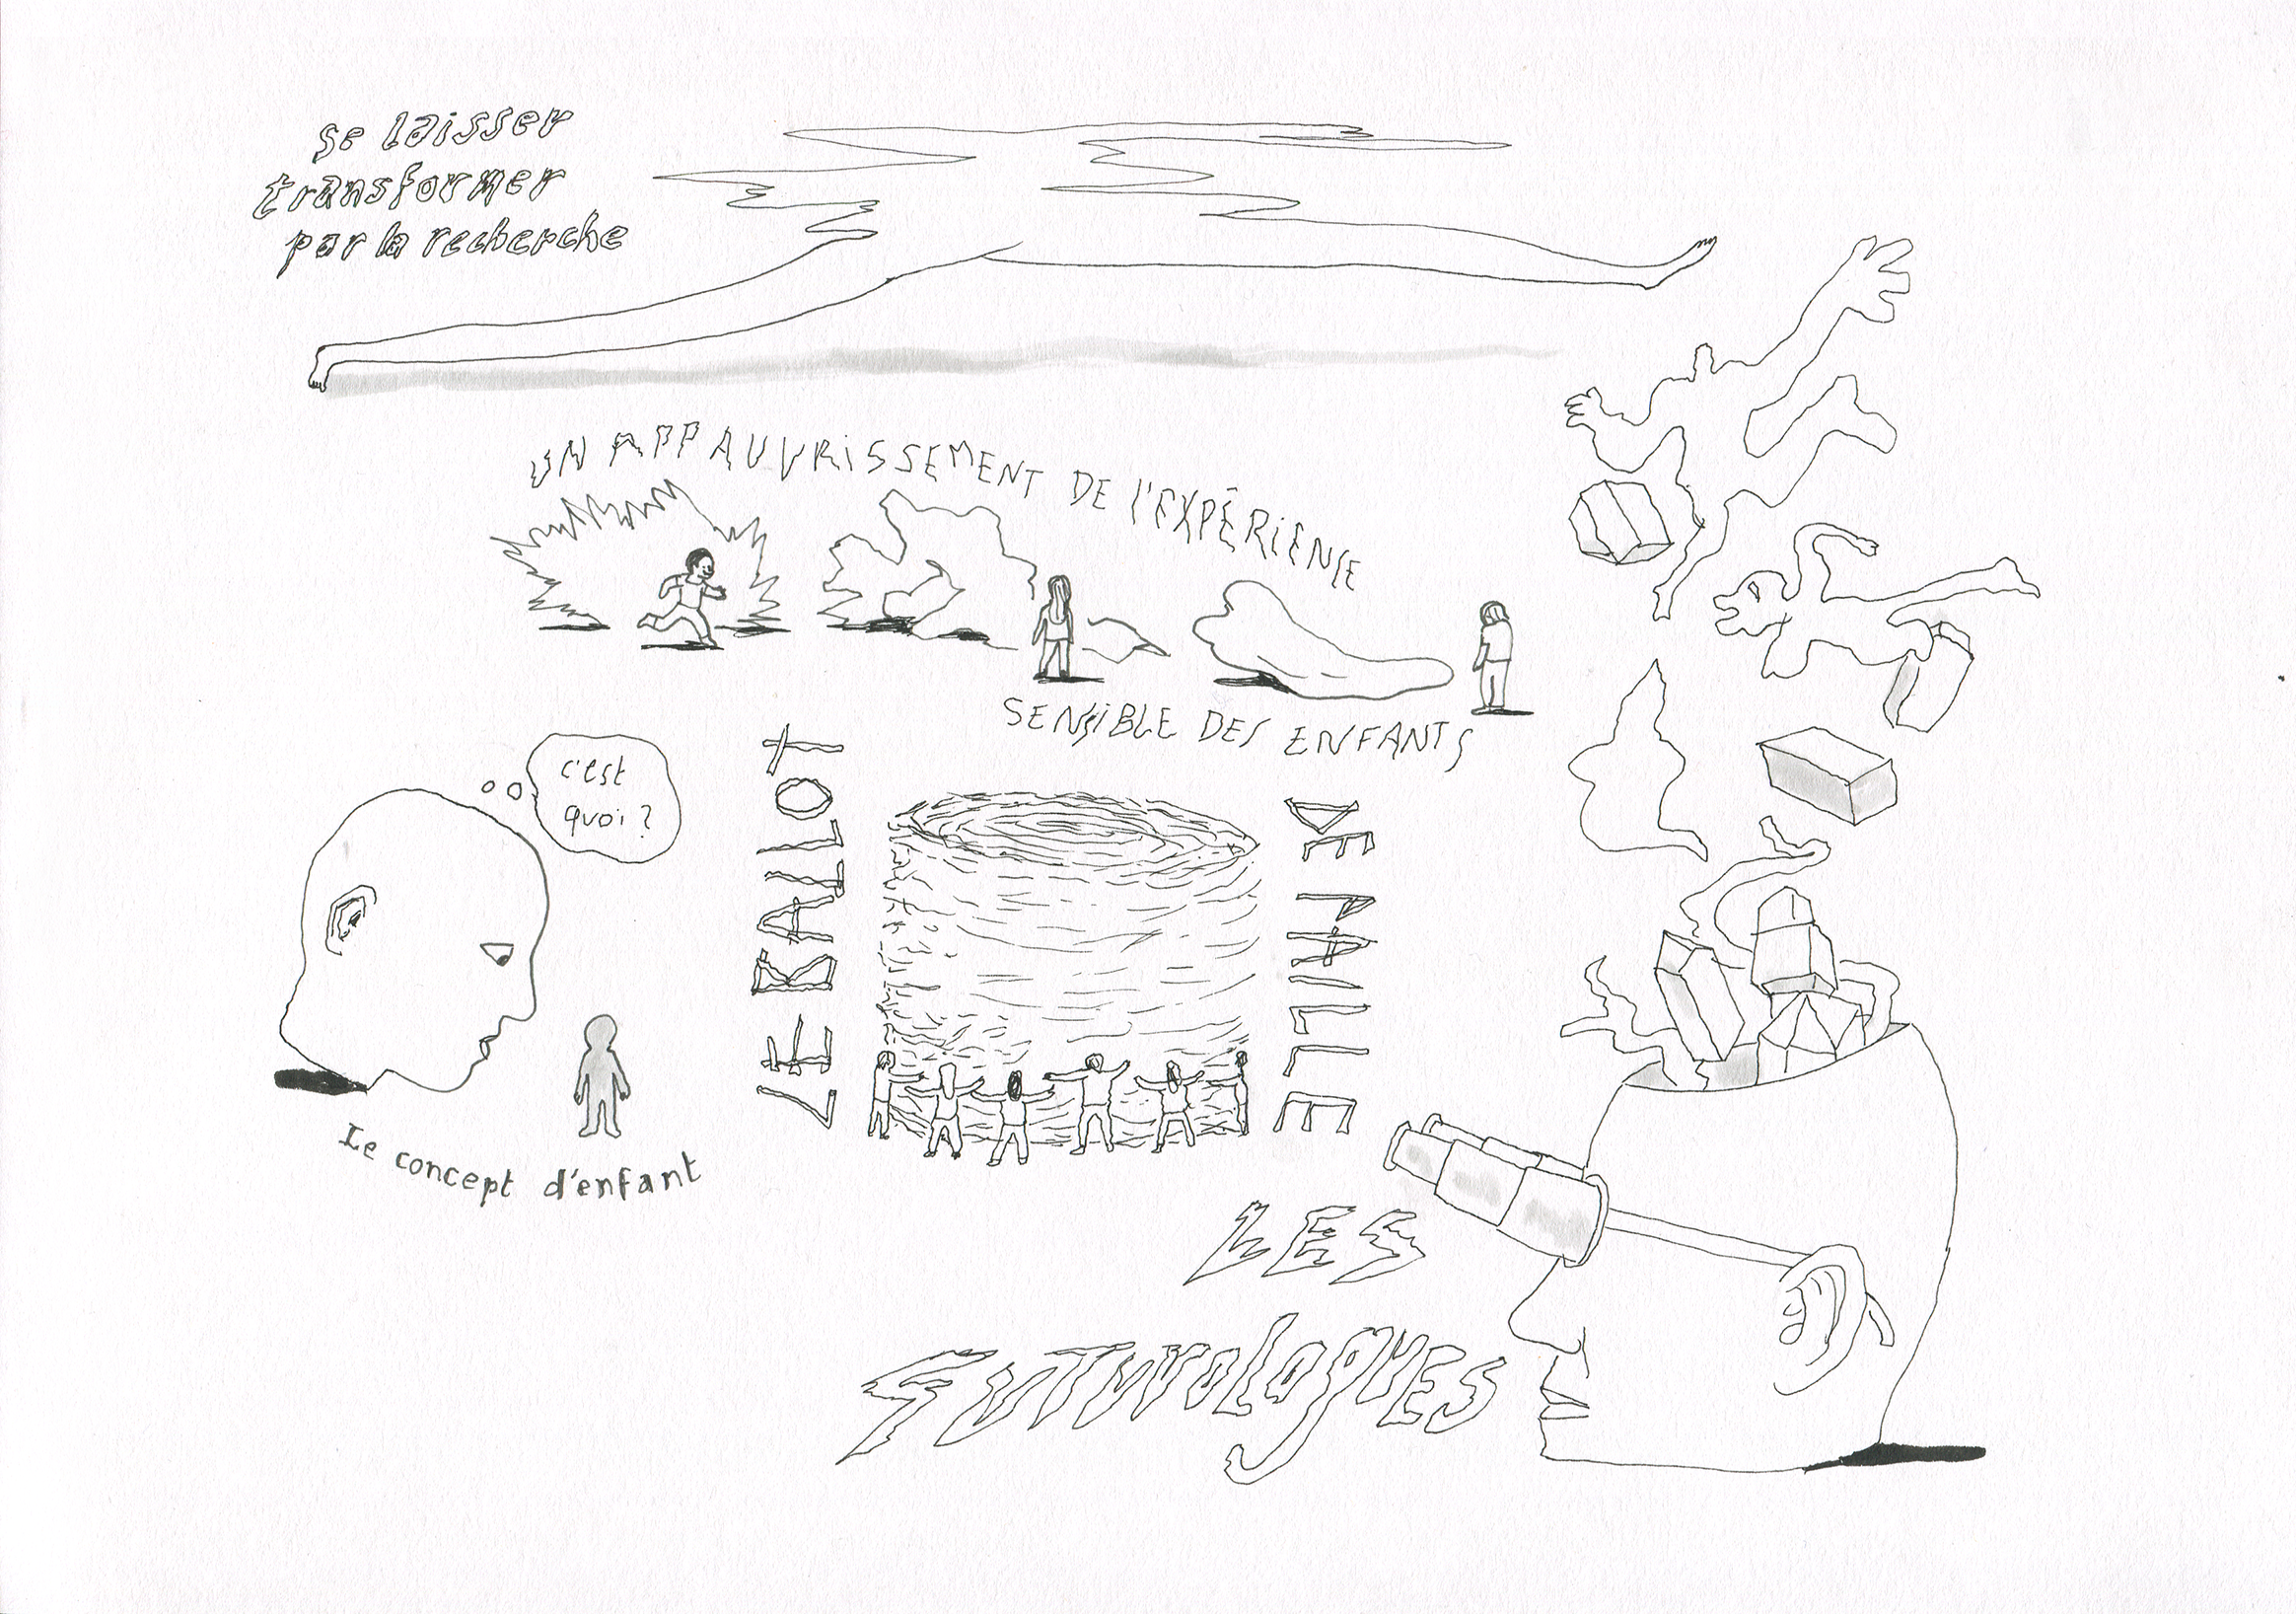 se laisser
transformer
par la recherche
UN APPAUVRISSEMENT DE l'EXPÉRIENCE
SENSIBLE DES ENFANTS
c'est
quoi ?
Le concept d'enfant
LE BALLOT
DE PAILLE
LES
FUTUROLOGUES